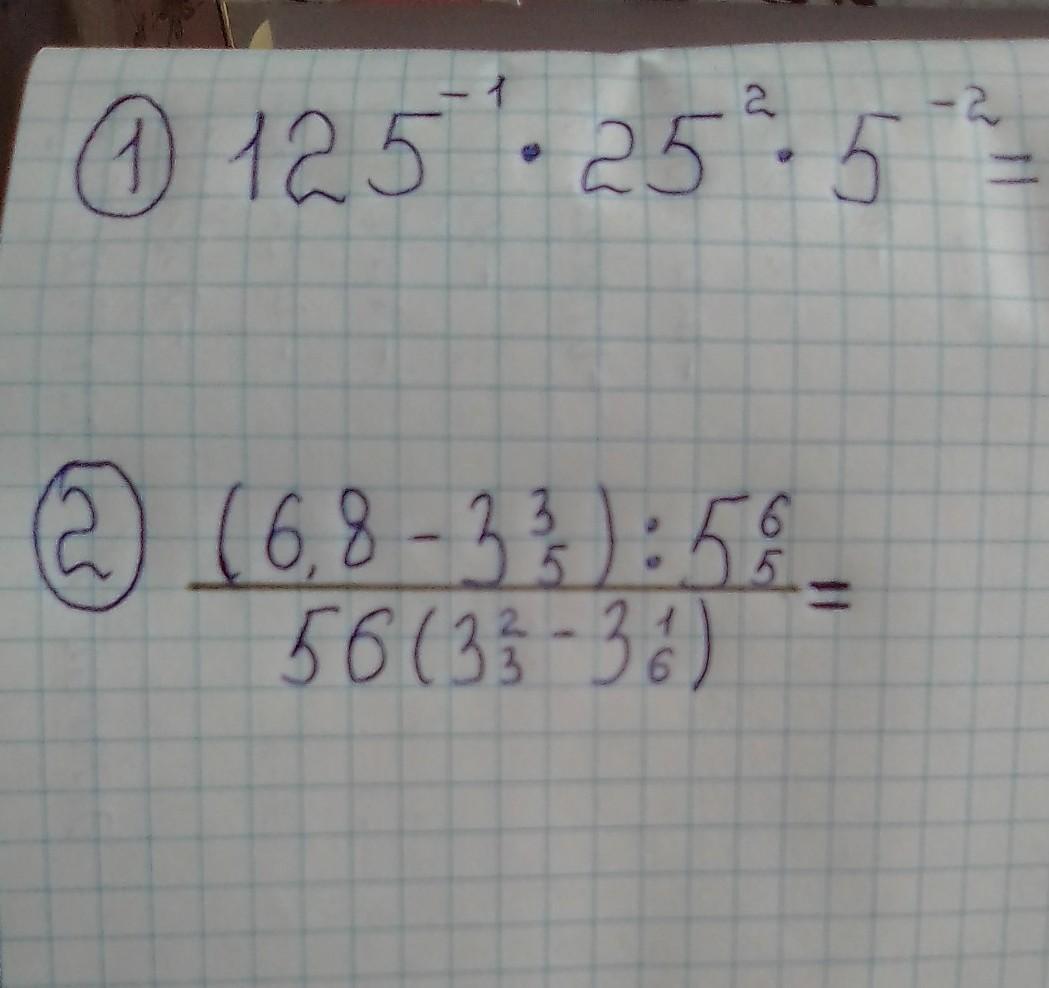 ① 125⁻¹ · 25² · 5⁻² =
② (6,8 - 3 3/5) : 5 6/5
56(3 2/3 - 3 1/6) =